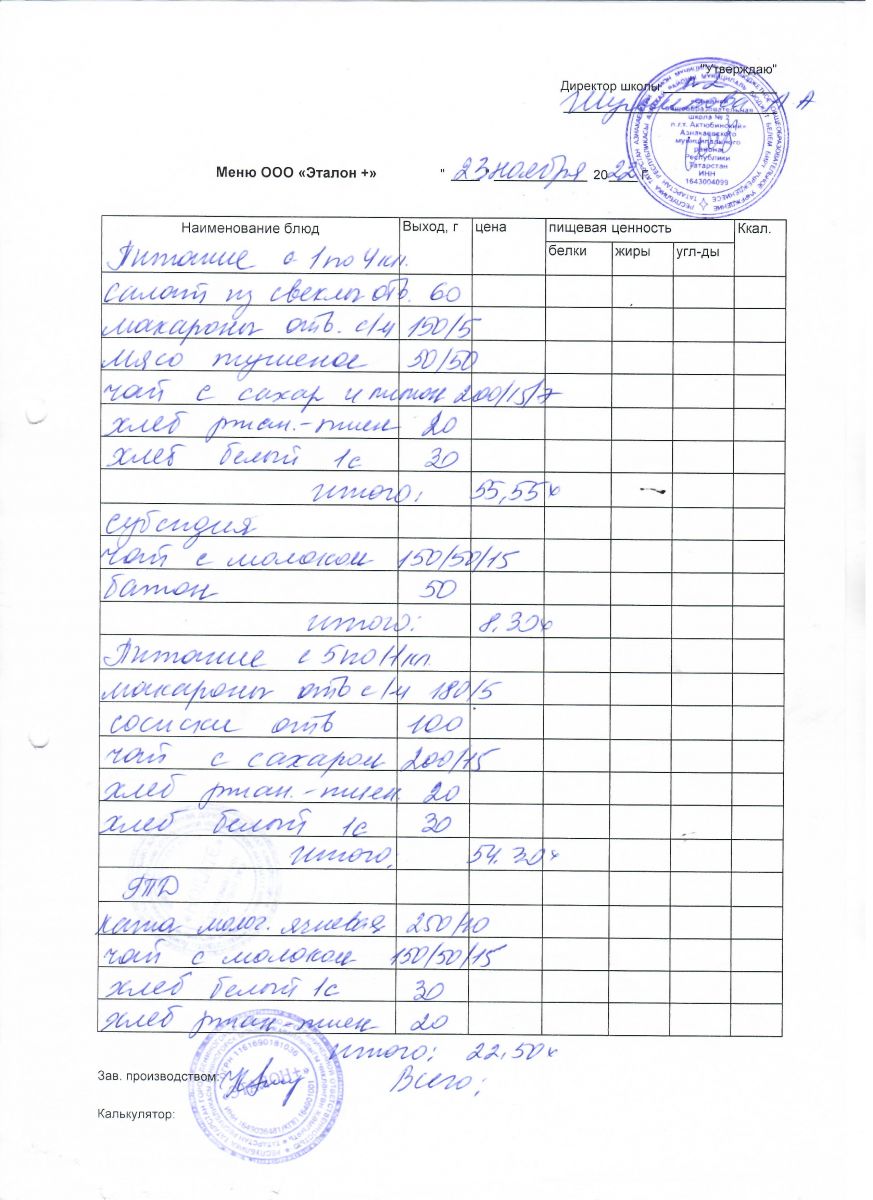 "Утверждаю"
Директор школы №2
Меню ООО «Эталон +» " 23 ноября 2022 г.
Наименование блюд Выход, г цена пищевая ценность Ккал.
белки жиры угл-ды
Питание с 1 по 4 кл.
салат из свеклы отв. 60
макароны отв. с/м 150/5
мясо тушеное 50/50
чай с сахар и лимон 200/15/7
хлеб ржан.-пшен 20
хлеб белый 1с 30
итого: 55,55к
субсидия
чай с молоком 150/50/15
батон 50
итого: 8.30к
Питание с 5 по 11 кл.
макароны отв с/м 180/5
сосиски отв 100
чай с сахаром 200/15
хлеб ржан.-пшен 20
хлеб белый 1с 30
итого: 54.30к
ГПД
каша молоч. ячневая 250/10
чай с молоком 150/50/15
хлеб белый 1с 30
хлеб ржан-пшен 20
итого: 22.50к
Зав. производством: Всего:
Калькулятор:
общеобразовательная
школа № 2
п.г.т. Актюбинский»
Азнакаевского
муниципального
района
Республики
Татарстан
ИНН
1643004099